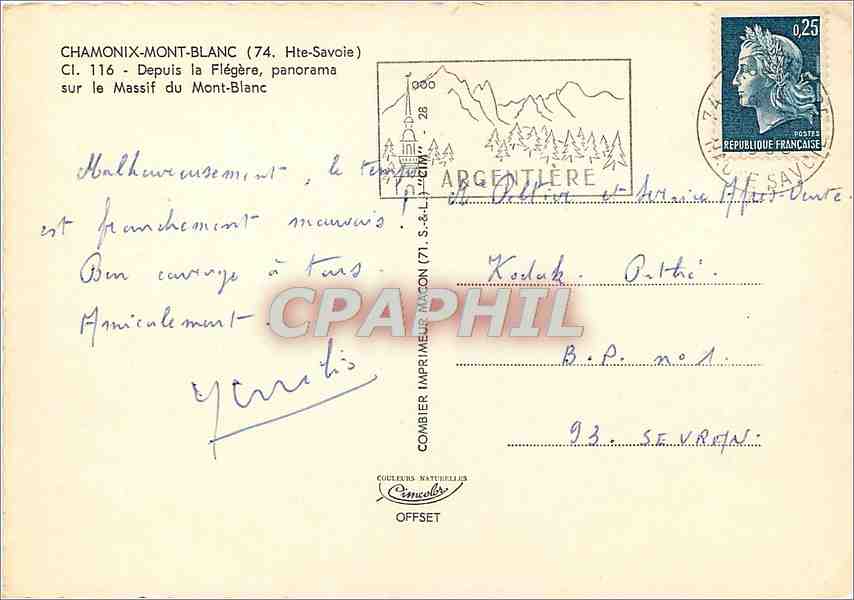 CHAMONIX-MONT-BLANC (74. Hte-Savoie)
Cl. 116 - Depuis la Flégère, panorama
sur le Massif du Mont-Blanc
ARGENTIÈRE
0,25
POSTES
RÉPUBLIQUE FRANÇAISE
74
SAVOIE
Malheureusement, le temps
est franchement mauvais !
Bon courage à tous.
Amicalement.
et Service Après-Vente.
Kodak Pathé.
B.P. n°1.
93. SEVRAN.
COMBIER IMPRIMEUR MACON (71. S.-&-L.) "CIM" - 28
CPAPHIL
COULEURS NATURELLES
Cimcolor
OFFSET